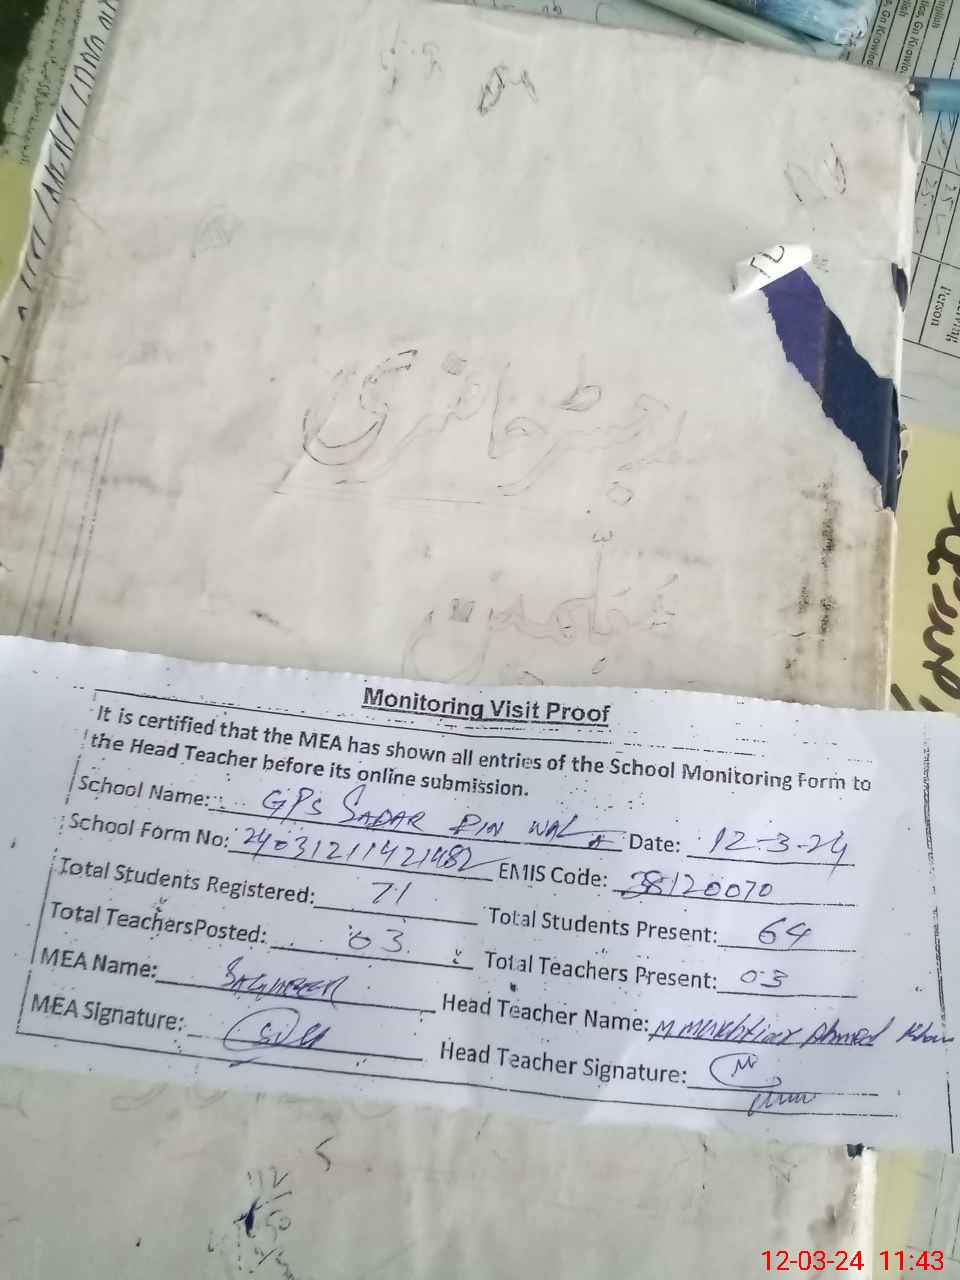 رجسٹر حاضری
معلمین
Monitoring Visit Proof
It is certified that the MEA has shown all entries of the School Monitoring Form to
the Head Teacher before its online submission.
School Name: GPS SADAR DIN WALA Date: 12-3-24
School Form No: 24031211421482 EMIS Code: 38120070
Total Students Registered: 71 Total Students Present: 64
Total TeachersPosted: 03 Total Teachers Present: 03
MEA Name: Head Teacher Name: M Mukhtiar Ahmed Khan
MEA Signature: Head Teacher Signature:
Person
12-03-24 11:43